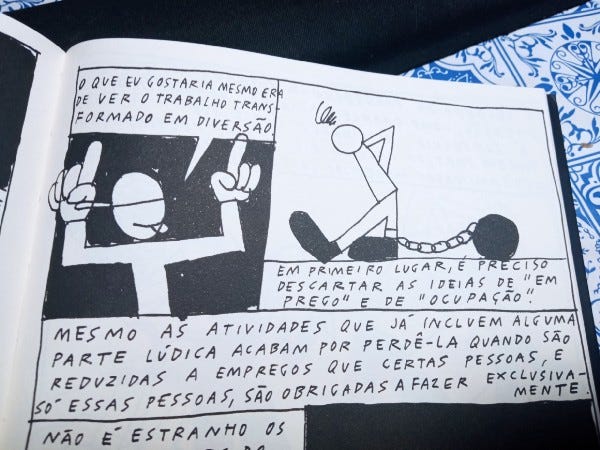 O QUE EU GOSTARIA MESMO ERA
DE VER O TRABALHO TRANS-
FORMADO EM DIVERSÃO
EM PRIMEIRO LUGAR, É PRECISO
DESCARTAR AS IDEIAS DE "EM
PREGO" E DE "OCUPAÇÃO".
MESMO AS ATIVIDADES QUE JÁ INCLUEM ALGUMA
PARTE LÚDICA ACABAM POR PERDÊ-LA QUANDO SÃO
REDUZIDAS A EMPREGOS QUE CERTAS PESSOAS, E
SÓ ESSAS PESSOAS, SÃO OBRIGADAS A FAZER EXCLUSIVA-
MENTE.
NÃO É ESTRANHO OS